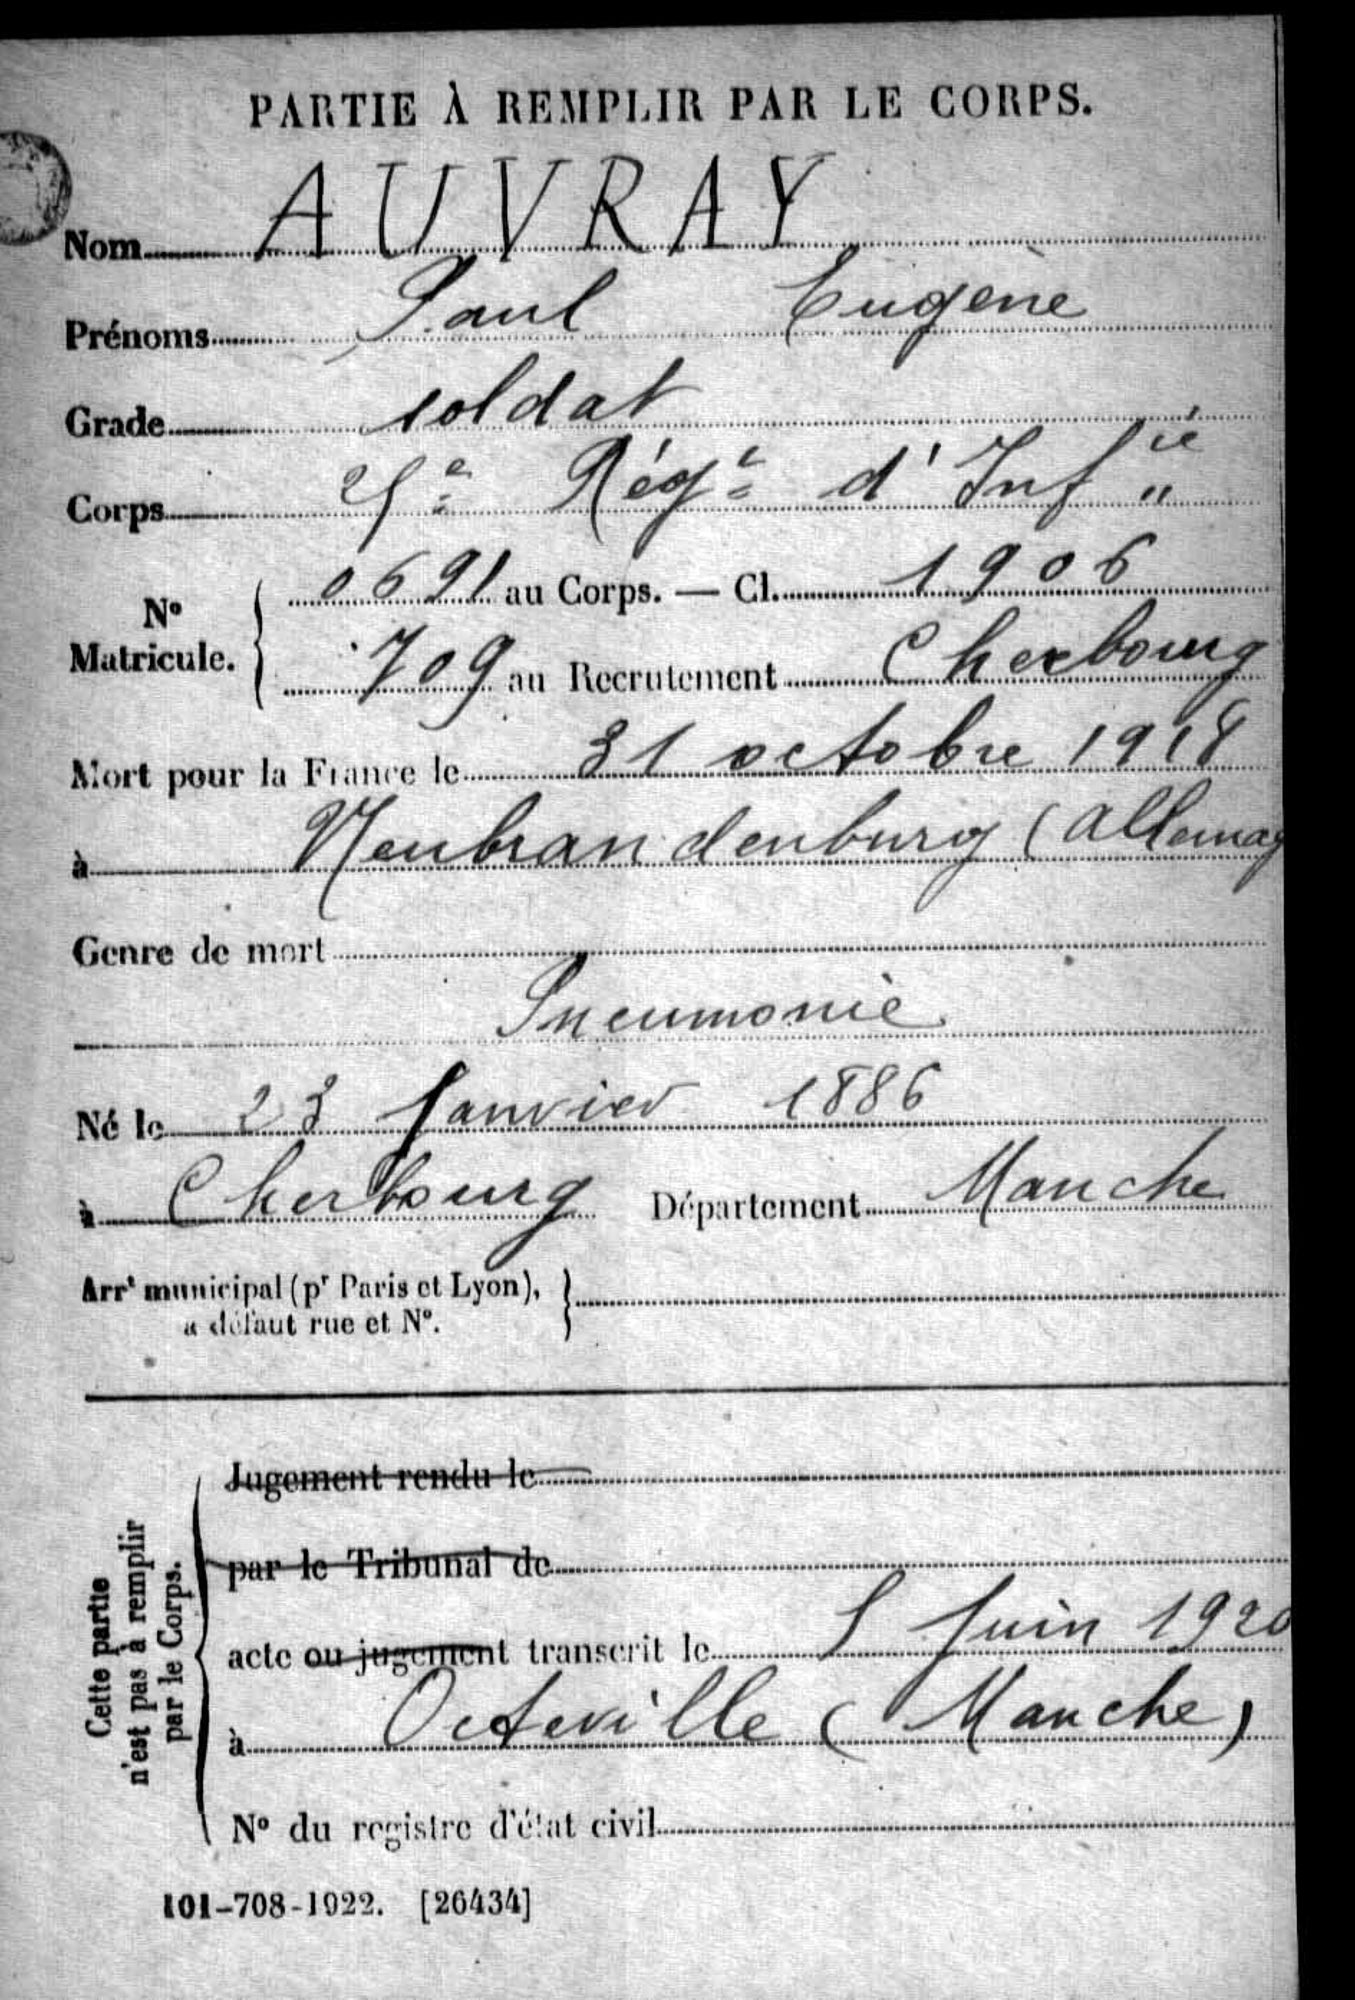 PARTIE À REMPLIR PAR LE CORPS.
Nom AUVRAY
Prénoms Paul Eugène
Grade soldat
Corps 25e Régt d'Infie
No Matricule. 0691 au Corps. — Cl. 1906
709 au Recrutement Cherbourg
Mort pour la France le 31 octobre 1918
à Neubrandenburg (Allemag
Genre de mort
Pneumonie
Né le 23 Janvier 1886
à Cherbourg Département Manche
Arrt municipal (pr Paris et Lyon),
à défaut rue et No.
Cette partie
n'est pas à remplir
par le Corps.
Jugement rendu le
par le Tribunal de
acte ou jugement transcrit le 5 Juin 1920
à Octeville (Manche)
No du registre d'état civil
101-708-1922. [26434]